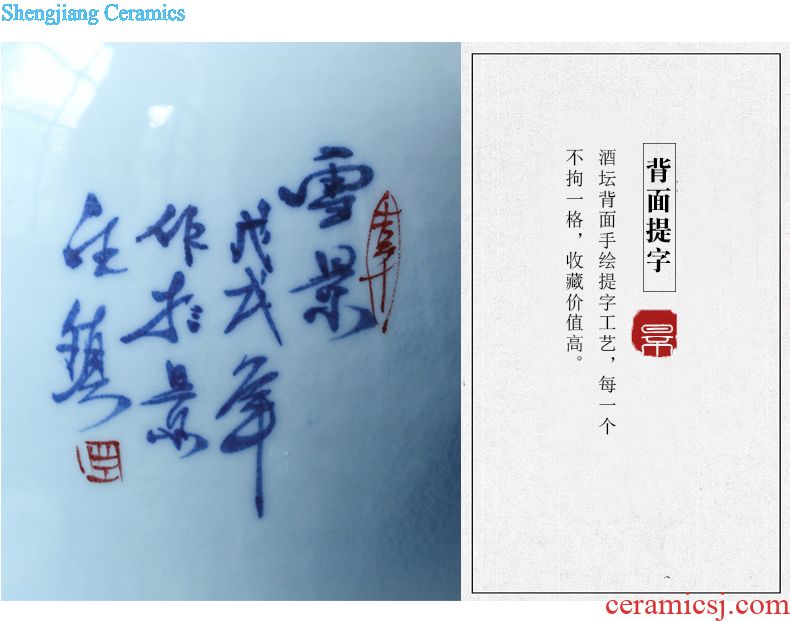 Shengjiang Ceramics
雪景
戊戌年
作於景
背面提字
景
酒坛背面手绘提字工艺，每一个
不拘一格，收藏价值高。
ceramicsj.com